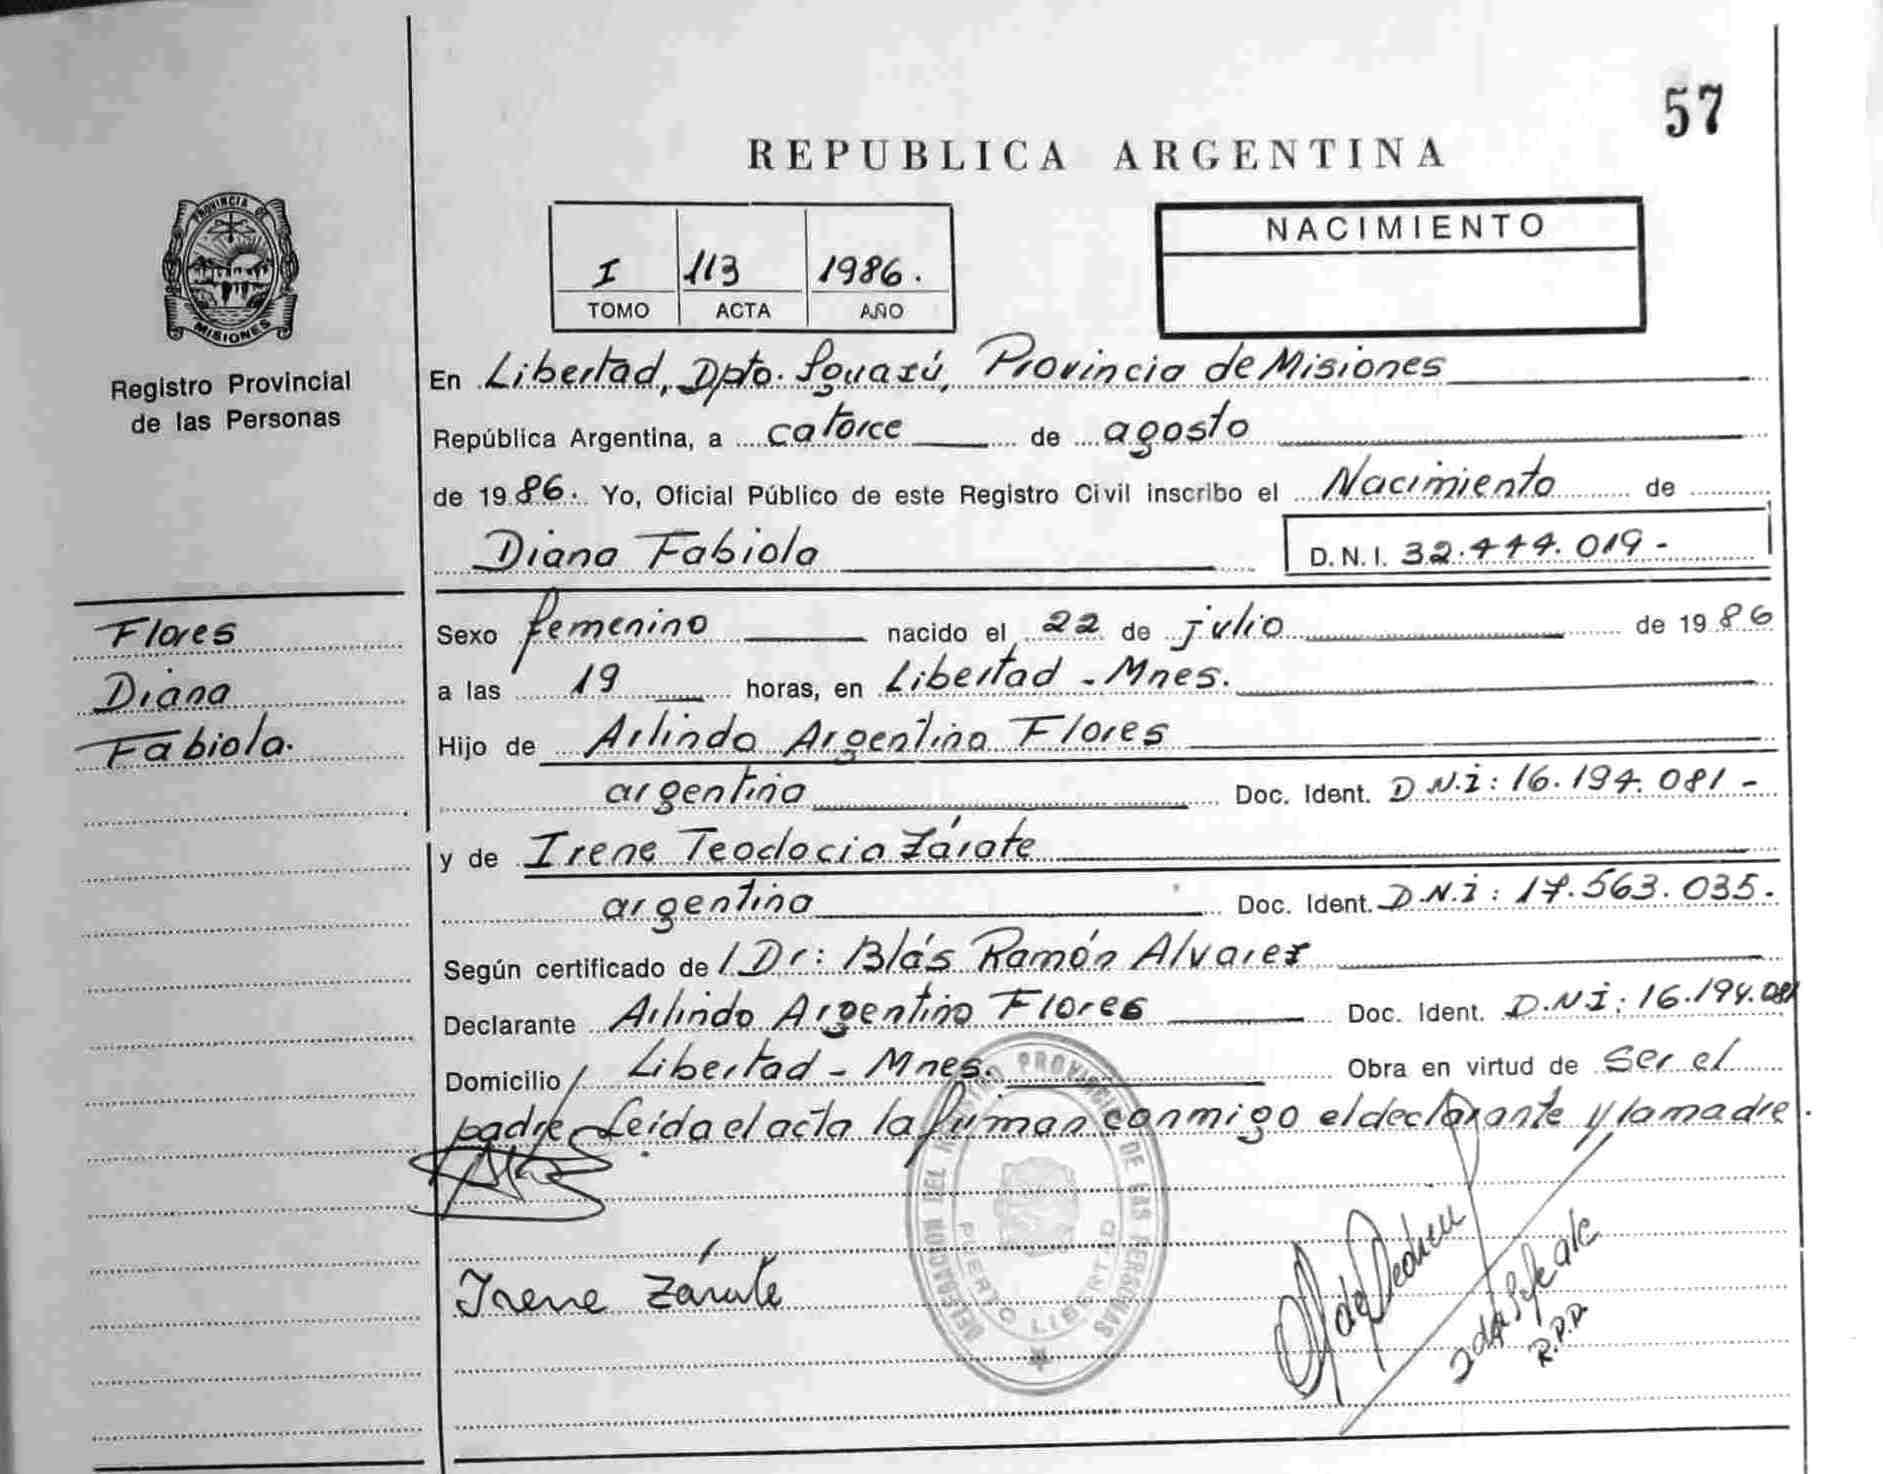 57
REPUBLICA ARGENTINA
PROVINCIA DE MISIONES
Registro Provincial
de las Personas
I 113 1986.
TOMO ACTA AÑO
NACIMIENTO
En Libertad, Dpto. Iguazú, Provincia de Misiones
República Argentina, a catorce de agosto
de 1986. Yo, Oficial Público de este Registro Civil inscribo el Nacimiento de
Diana Fabiola D.N.I. 32.444.019-
Flores
Diana
Fabiola.
Sexo femenino nacido el 22 de julio de 1986
a las 19 horas, en Libertad - Mnes.
Hijo de Arlindo Argentino Flores
argentino Doc. Ident. D.N.i: 16.194.081-
y de Irene Teodocia Zárate
argentina Doc. Ident. D.N.i: 17.563.035.
Según certificado de / Dr: Blás Ramón Alvarez
Declarante Arlindo Argentino Flores Doc. Ident. D.N.I: 16.194.081
Domicilio Libertad - Mnes. Obra en virtud de ser el
padre Leída el acta la firman conmigo el declarante y la madre.
DELEGACION DEL REGISTRO PROVINCIAL DE LAS PERSONAS
PUERTO LIBERTAD
Irene Zárate
R.P.P.